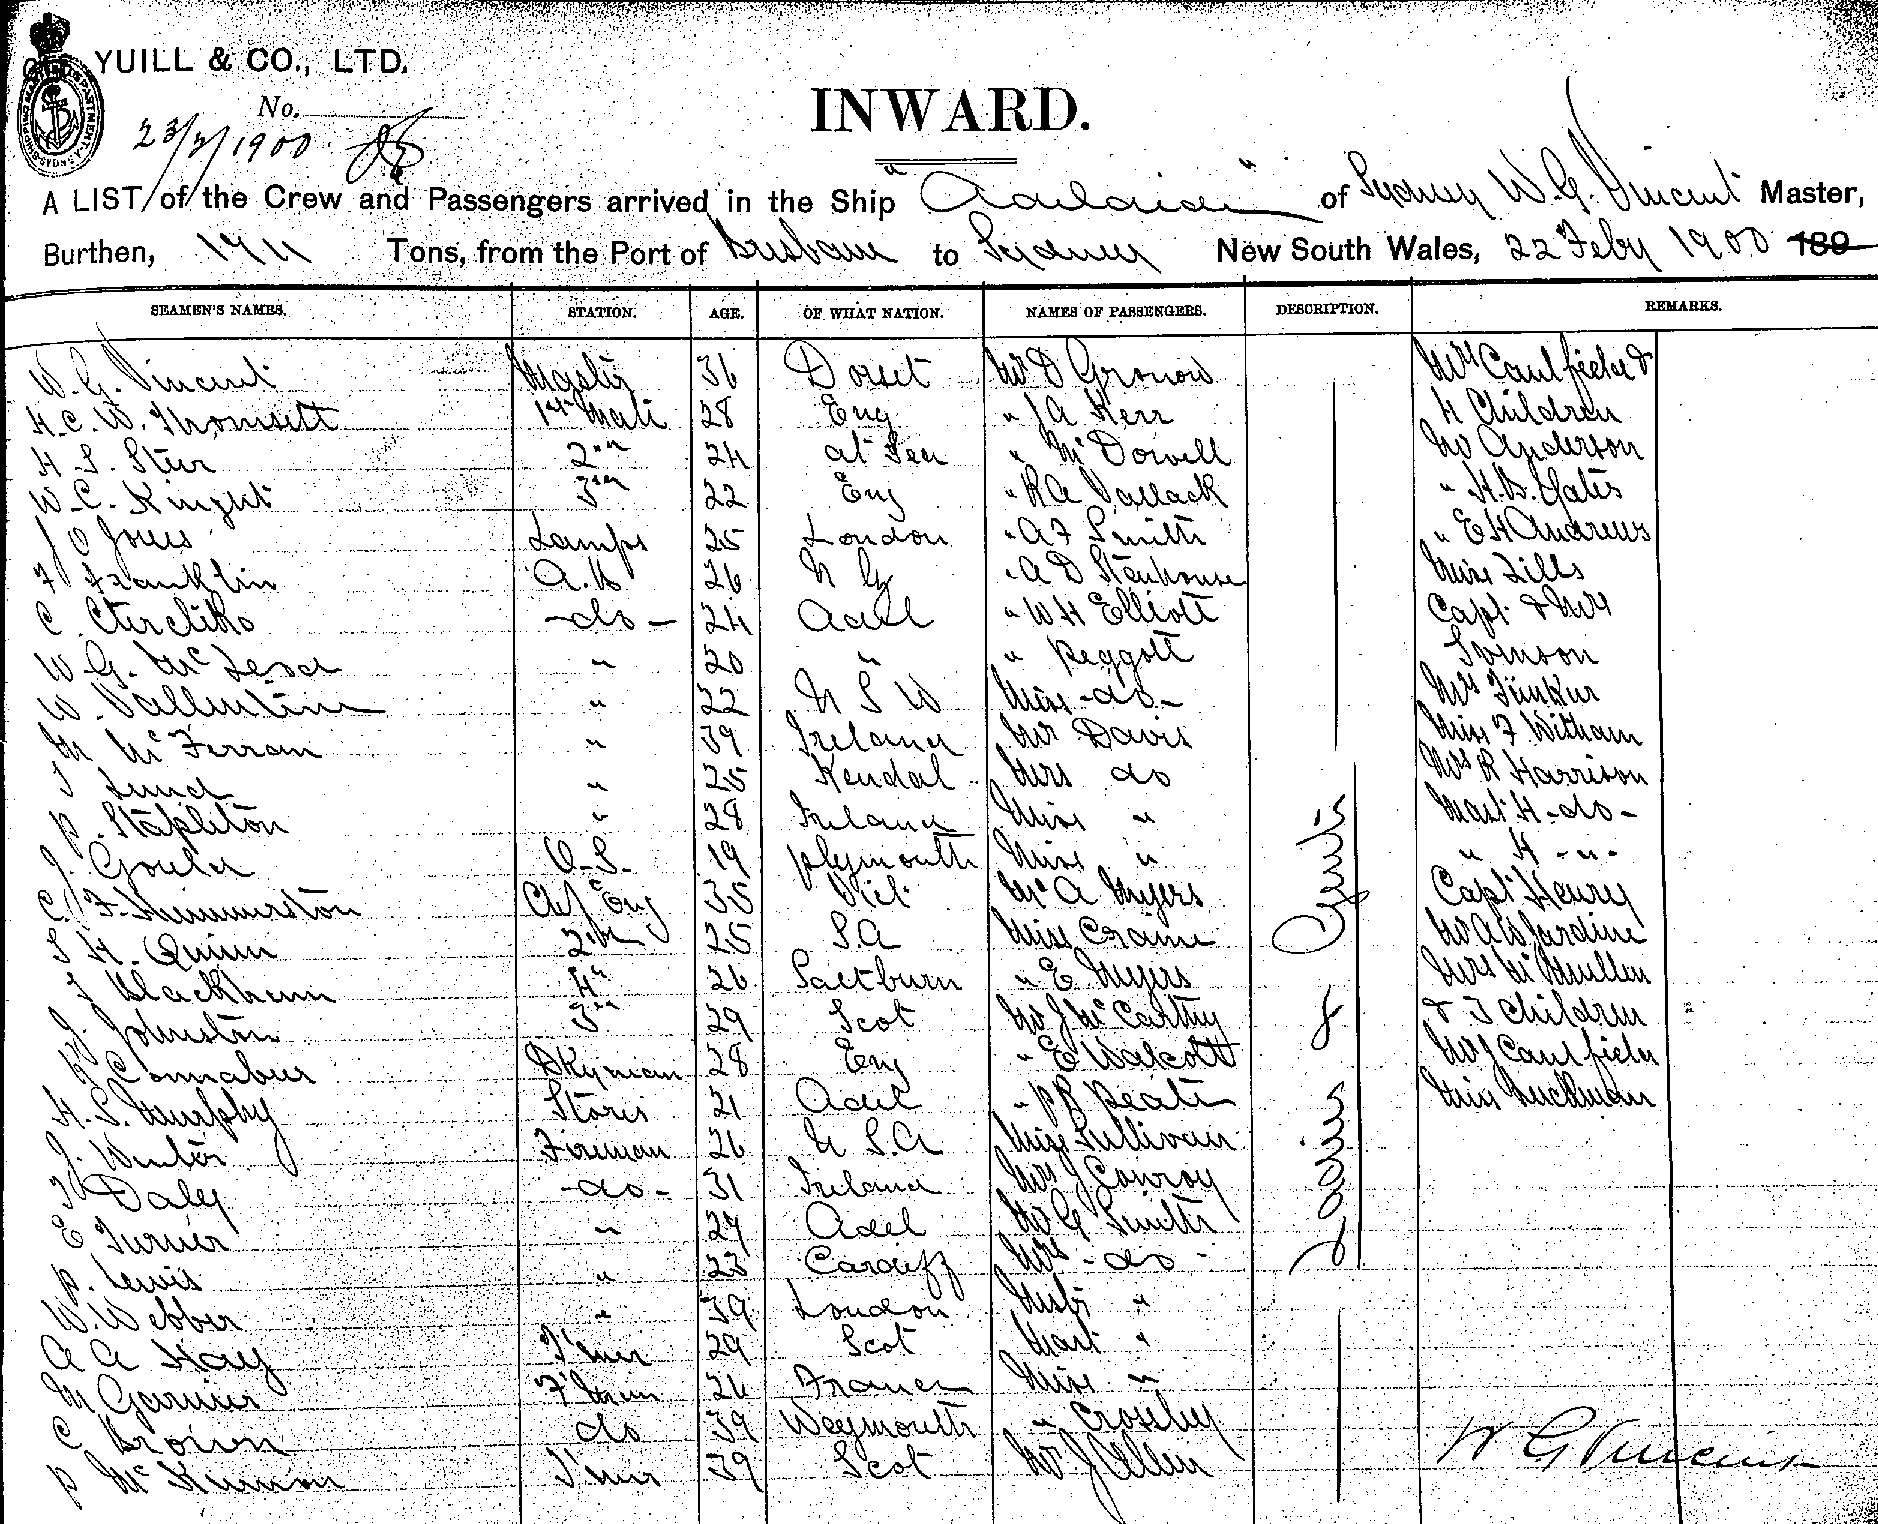 YUILL & CO., LTD.
No.
23/2/1900
INWARD.
A LIST of the Crew and Passengers arrived in the Ship "Adelaide" of Sydney W. G. Vincent Master,
Burthen, 1711 Tons, from the Port of Brisbane to Sydney New South Wales, 22 Feby 1900 189
SEAMEN'S NAMES. STATION. AGE. OF WHAT NATION. NAMES OF PASSENGERS. DESCRIPTION. REMARKS.
W. G. Vincent Master 36 Dorset Mr D Gronow Mrs Caulfield &
H. C. W. Thomsett 1st Mate 28 Eng " J A Kerr 4 Children
H. S. Stur 2nd 24 at Sea " McDowell Mr Anderson
W. C. Knight 3rd 22 Eng " R A Vallack " H. B. Yates
J O Jones Lamps 25 London " A F Smith " E H Andrews
F Franklin A.B 26 " A D Stenhouse Miss Lills
C. -do- 24 Adel " W H Elliott Capt. & Mrs
W. G. McLeod " 20 " " Peggott Svenson
W. Vallentine " 22 N S W Miss -do- Mrs
M McFerran " 39 Ireland Mr Davis Miss F Witham
T Lund " 25 Kendal Mrs do Mrs R Harrison
P. Stapleton " 28 Ireland Miss " Mast H -do-
J. Gould O.S. 19 Plymouth Miss " " H - " -
C. F. Chf Eng 35 Vic Mr A Myers Capt Henry
S H. Quinn 2nd 25 S.A Miss Craine Mr A W Jardine
J Blackburn 4th 26 Saltburn " E Myers Mrs McMullen
J. Johnston 3rd 29 Scot Mr J McCarthy & 3 Children
Connabur Dkyman 28 Eng " E Walcott Mr J Caulfield
H. S. Murphy Stores 21 Adel " P R Beate Miss Buckman
J. Winter Fireman 26 U.S.A Miss Sullivan
T Daly -do- 31 Ireland Mrs J Conroy
E Turner " 27 Adel Mr G Smith
P. Lewis " 23 Cardiff Mrs -do-
W. Webber " 39 London "
A A Hay T'mer 29 Scot Mast "
M Garnier F'man 26 France Miss "
C Brown do 39 Weymouth " Crosby
P McKinnon T'mer 39 Scot Mr J Allen
Saloon & Cabin
W G Vincent